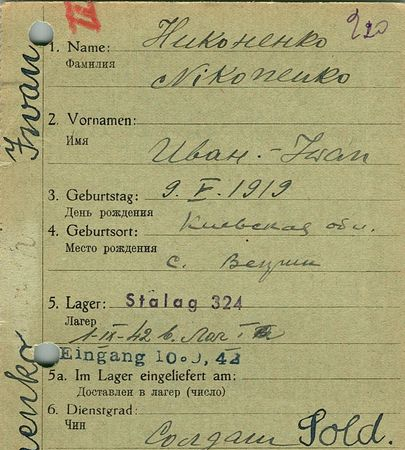 Iwan
enko
1. Name:
Фамилия
Никоненко
Nikonenko
2. Vornamen:
Имя
Иван.-Iwan
3. Geburtstag: 9. V. 1919
День рождения
4. Geburtsort: Киевская обл.
Место рождения
с.
5. Lager: Stalag 324
Лагерь
1-IX-42
Eingang 10.9.42
5a. Im Lager eingeliefert am:
Доставлен в лагерь (число)
6. Dienstgrad:
Чин
Солдат Sold.